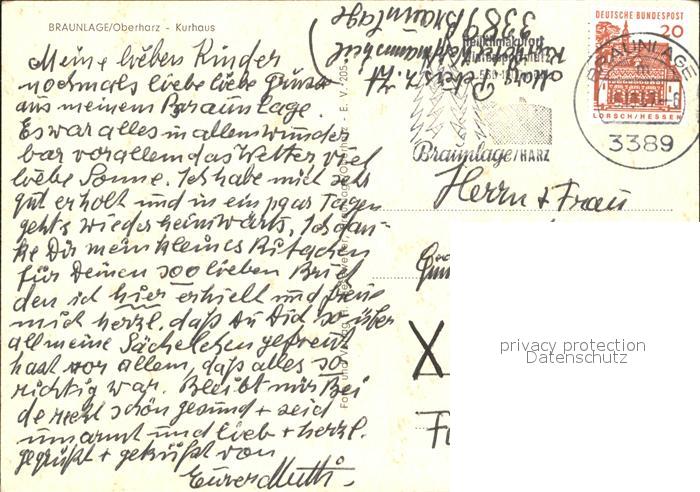 BRAUNLAGE/Oberharz - Kurhaus
Meine lieben Kinder
nochmals liebe liebe Grüsse
aus meinem Braunlage.
Es war alles in allem wunder
bar vor allem das Wetter viel
liebe Sonne. Ich habe mich sehr
gut erholt und in ein paar Tagen
gehts wieder heimwärts, Ich dan-
ke Dir mein kleines
für Deinen soo lieben Brief
den ich hier erhielt und freue
mich herzl. daß Du Dich so über
all meine Sächelchen gefreut
hast vor allem, daß alles so
richtig war. Bleibt mir Bei
de recht schön gesund + seid
umarmt und lieb + herzl.
gegrüßt + geküßt von
Eurer Mutti
3389 Braunlage
Heilklimakurort
Wintersportplatz
Braunlage/HARZ
DEUTSCHE BUNDESPOST
20
LORSCH/HESSEN
BRAUNLAGE
3389
Herrn + Frau
X
privacy protection
Datenschutz